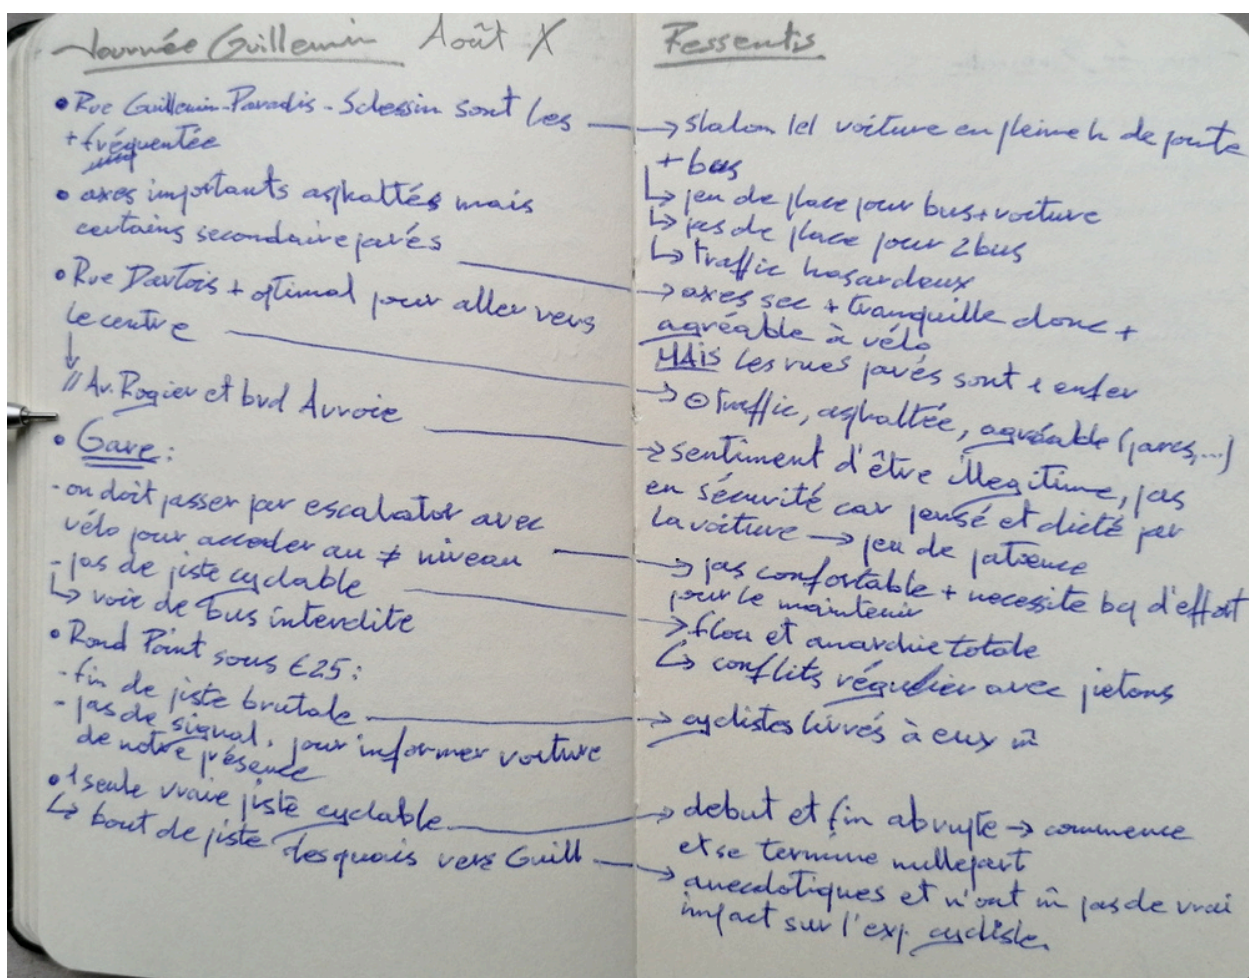 Journée Guillemin Août X
• Rue Guillemin-Paradis-Sclessin sont les
+ fréquentée
• axes importants asphaltés mais
certains secondaire pavés
• Rue Dartois + optimal pour aller vers
le centre
↓
// Av. Rogier et bvd Avroie
• Gare :
- on doit passer par escalator avec
vélo pour acceder au ≠ niveau
- pas de piste cyclable
↳ voie de bus interdite
• Rond Point sous E25 :
- fin de piste brutale
- pas de signal. pour informer voiture
de notre présence
• 1 seule vraie piste cyclable
↳ bout de piste des quais vers Guill
Ressentis
→ slalom voiture en pleine h de pointe
+ bus
↳ peu de place pour bus+voiture
↳ pas de place pour 2 bus
↳ traffic hasardeux
→ axes sec + tranquille donc +
agréable à vélo
MAIS les rues pavés sont l enfer
→ ⊖ traffic, asphaltée, agréable (parcs,...)
→ sentiment d'être illegitime, pas
en sécurité car pensé et dicté par
la voiture → jeu de patience
→ pas confortable + necessite bcp d'effort
pour le maintenir
→ flou et anarchie totale
↳ conflits régulier avec pietons
→ cyclistes livrés à eux m̂
→ debut et fin abrupte → commence
et se termine nullepart
→ anecdotiques et n'ont m̂ pas de vrai
impact sur l'exp cycliste.